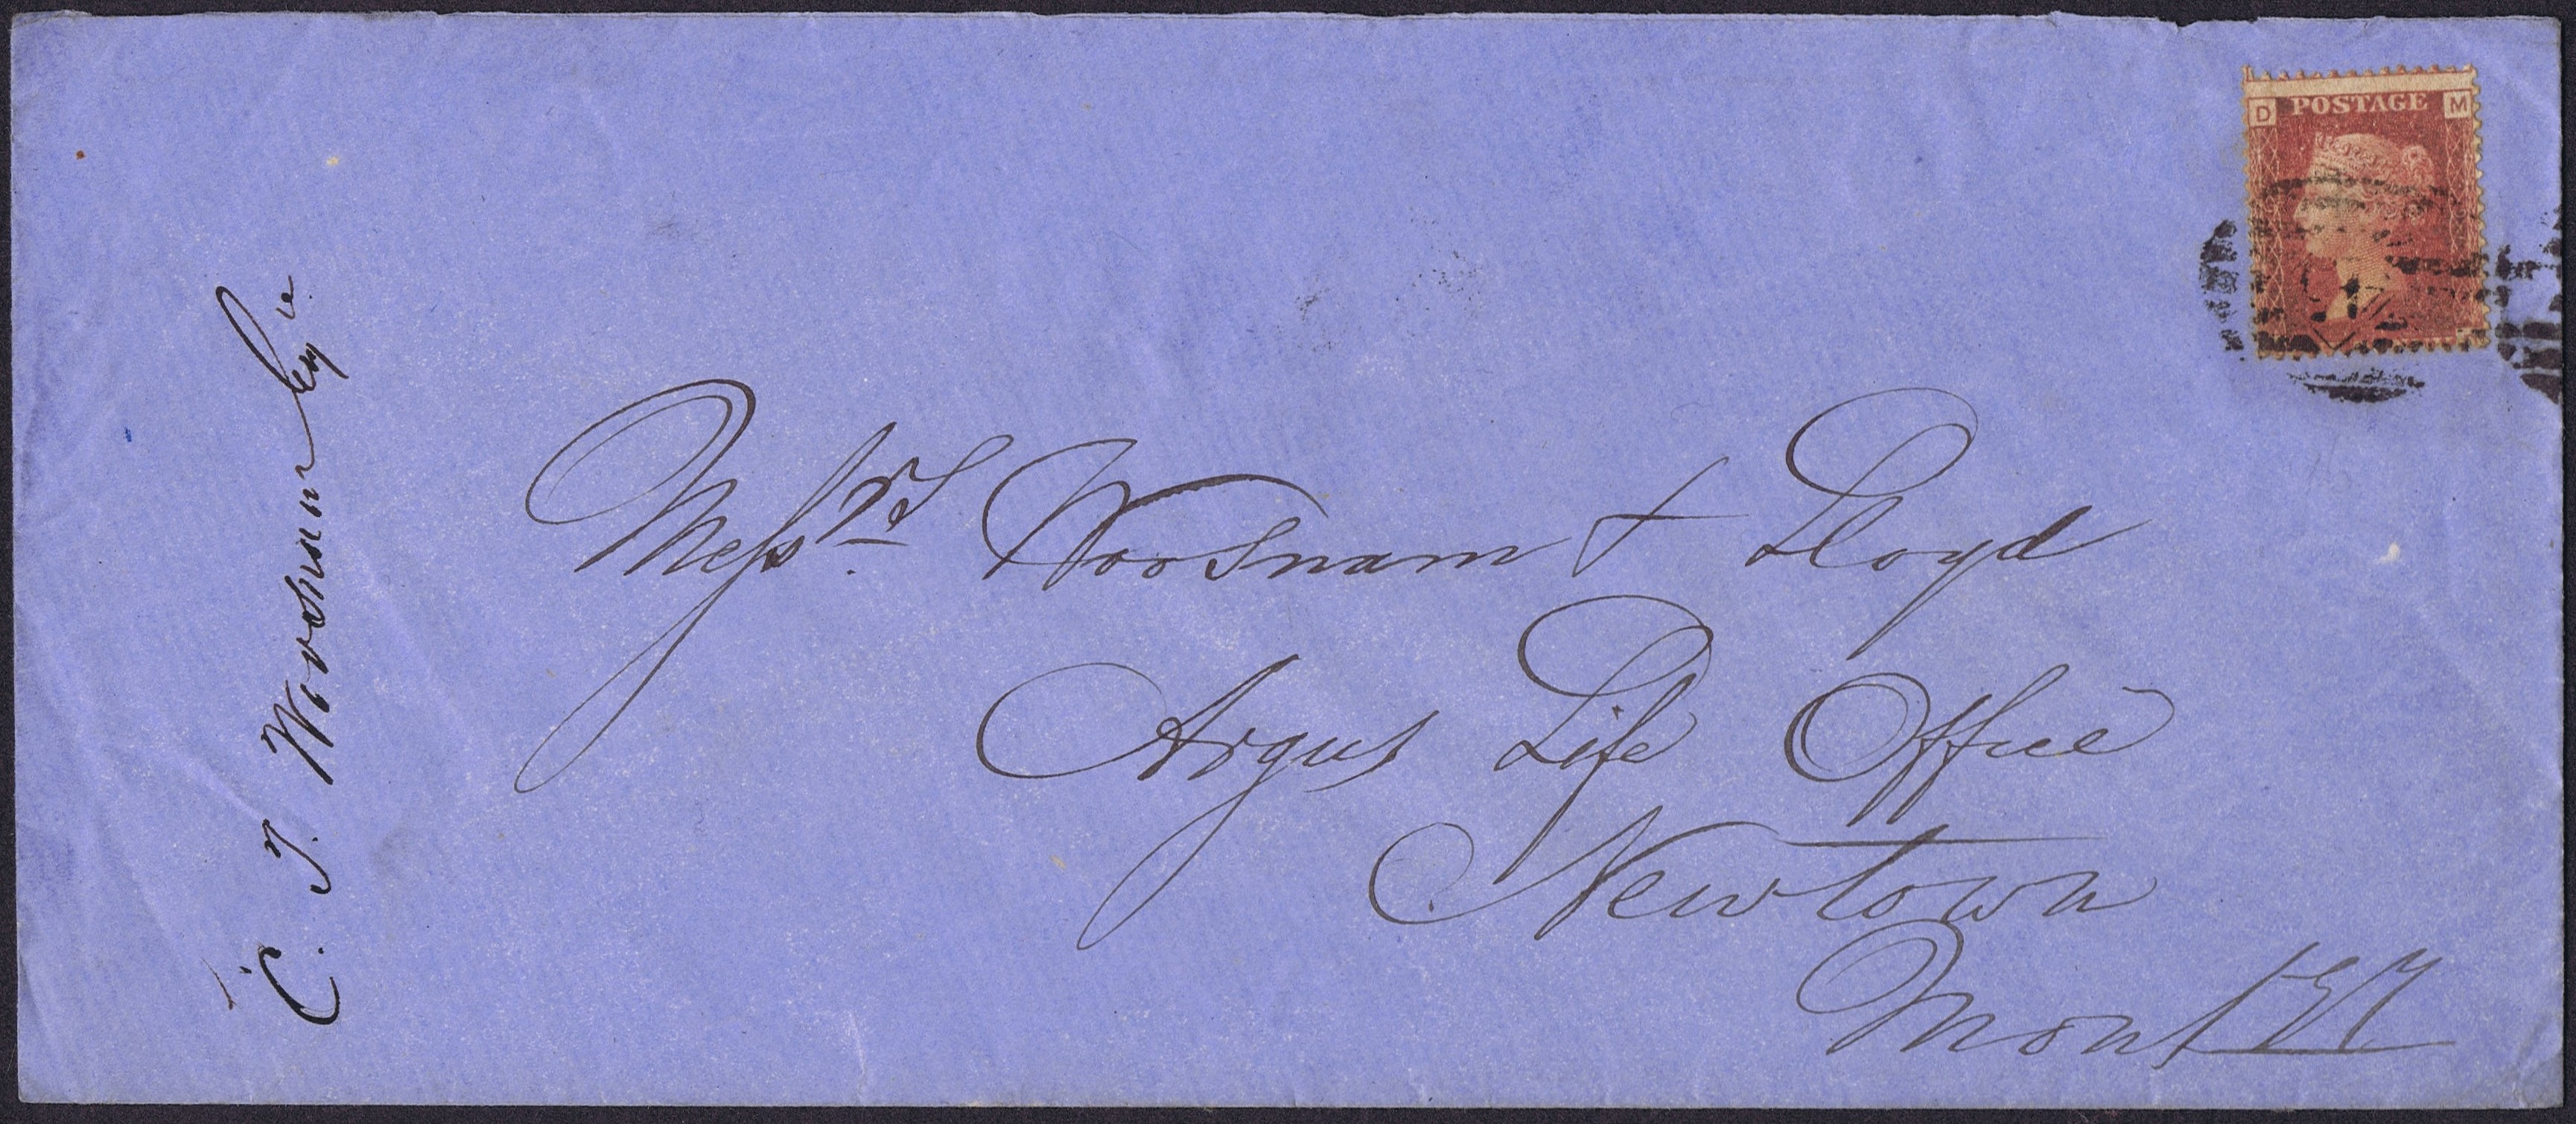 D POSTAGE M
Messrs. Woosnam + Lloyd
Argus Life Office
Newtown
C. T. Woosnam Esqre.